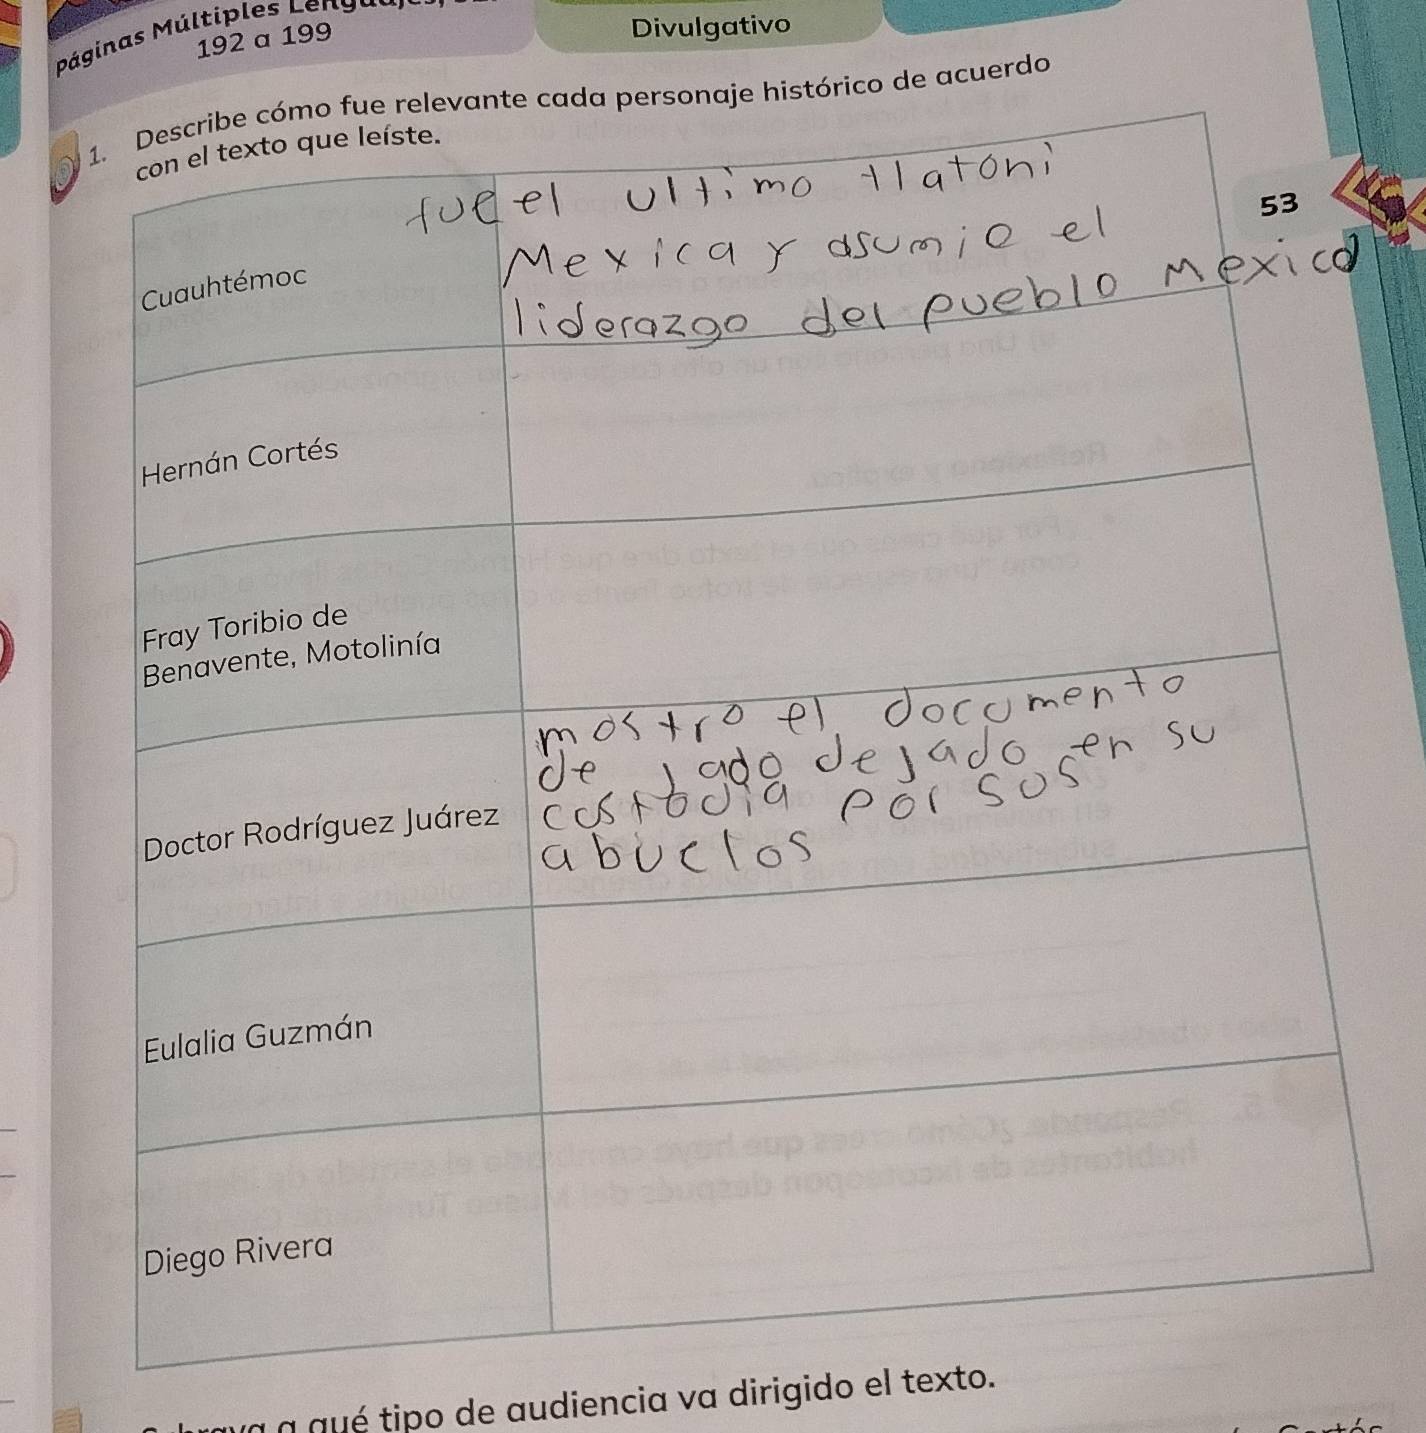 páginas Múltiples
192 a 199
Divulgativo
1. Describe cómo fue relevante cada personaje histórico de acuerdo
con el texto que leíste.
53
Cuauhtémoc
fue el ultimo tlatoni
Mexica y asumio el
liderazgo del pueblo Mexica
Hernán Cortés
Fray Toribio de
Benavente, Motolinía
Doctor Rodríguez Juárez
mostro el documento
de jado dejado en su
custodia por sus
abuelos
Eulalia Guzmán
Diego Rivera
a qué tipo de audiencia va dirigido el texto.